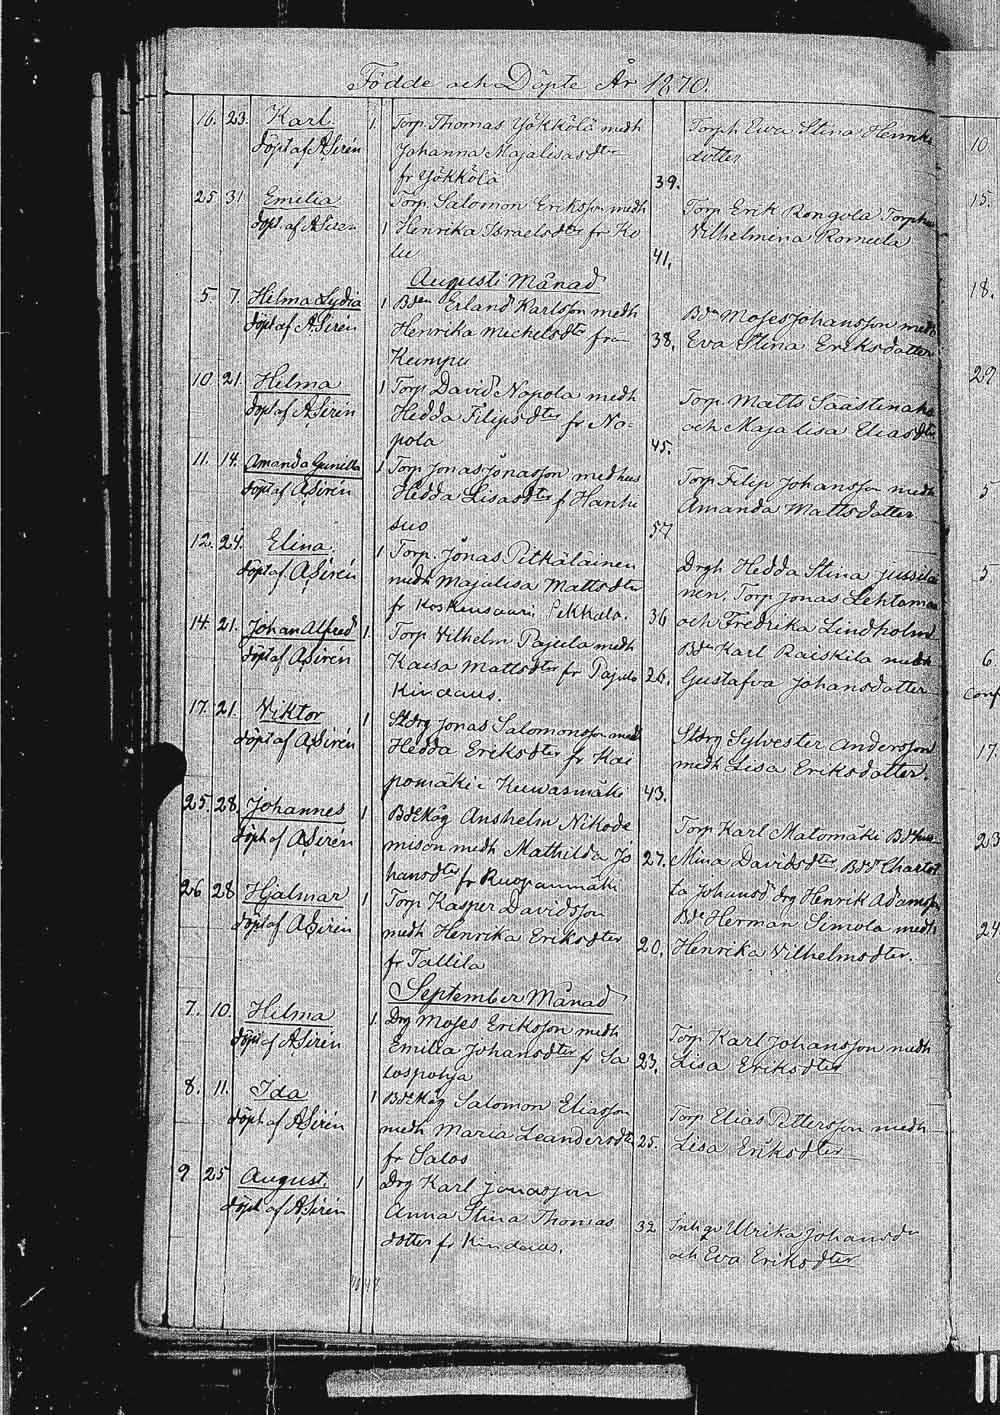 Födde och Döpte År 1870.
16. 23. Karl. 1. Torp. Thomas Yökkölä medh Torph Ewa Stina Henriks
döpt af A Sirén Johanna Majalisasdtr dotter
fr Yökkölä 39.
25 31 Emilia Torp. Salomon Eriksson medh Torp Erik Rongola Torphu
döpt. af A Sirén 1 Henrika Israelsdtr fr Ko Vilhelmina Romula
lu 41.
Augusti Månad
5. 7. Hilma Lydia 1 Bdn Erland Karlsson medh Bdn Moses Johansson medh
döpt af A Sirén Henrika Michelsdtr från 38. Eva Stina Eriksdotter
Kumpu
10. 21. Hilma 1 Torp David Napola medh Torp. Matts Säästinaho
döpt af A Sirén Hedda Filipsdtr fr Na- och Majalisa Eliasdtr
pola 45.
11. 14. Amanda Gunilla 1 Torp Jonas Jonasson medhus Torp Filip Johansson medh
döpt af A Sirén Hedda Lisasdtr f Hanhi Amanda Mattsdotter
suo 57
12. 24. Elina. 1 Torp. Jonas Pitkäläinen Drgh Hedda Stina Jussilai
döpt af A Sirén medh Majalisa Mattsdtr nen, Torp Jonas Lehtomaa
fr Koskensaari Pekkala. 36 och Fredrika Lindholm
14. 21. Johan Alfred 1. Torp Vilhelm Pajula medh Bdn Karl Raiskila medh
döpt af A Sirén Kaisa Mattsdtr fr Pajula 26. Gustafva Johansdotter
Kindaus.
17. 21. Viktor 1 Stdrg Jonas Salomonsson medh Stdrg Sylvester Andersson
döpt af A Sirén Hedda Eriksdtr fr Kai medh Lisa Eriksdotter.
pomäki i Kuivasmäki 43.
25. 28. Johannes 1 Bdekäg Anshelm Nikode Torp Karl Matomäki Bdhu
döpt af A Sirén mison medh Mathilda Jo 27. Mina Davidsdtr, Bdr Charlot
hansdtr fr Ruopanmäki ta Johansd drg Henrik Adamsson
26 28 Hjalmar 1 Torp Kasper Davidsson Bde Herman Simola medh
döpt af A Sirén medh Henrika Eriksdtr 20. Henrika Vilhelmsdter.
fr Tallila
September Månad
7. 10. Hilma 1. Drg Moses Eriksson medh Torp Karl Johansson medh
döpt af A Sirén Emilia Johansdtr f Sa 23. Lisa Eriksdtr
lospohja
8. 11. Ida 1 Bdekäg Salomon Eliasson Torp Elias Pettersson medh
döpt af A Sirén medh Maria Leandersdtr 25. Lisa Eriksdtr
fr Salos
9 25 August. 1 Drg Karl Jonasson
döpt af A Sirén Anna Stina Thomas 32 Inhqv Ulrika Johansdr
dotter fr Kindaus. och Eva Eriksdter
10
15.
18.
29
5
5
6.
17.
23
24